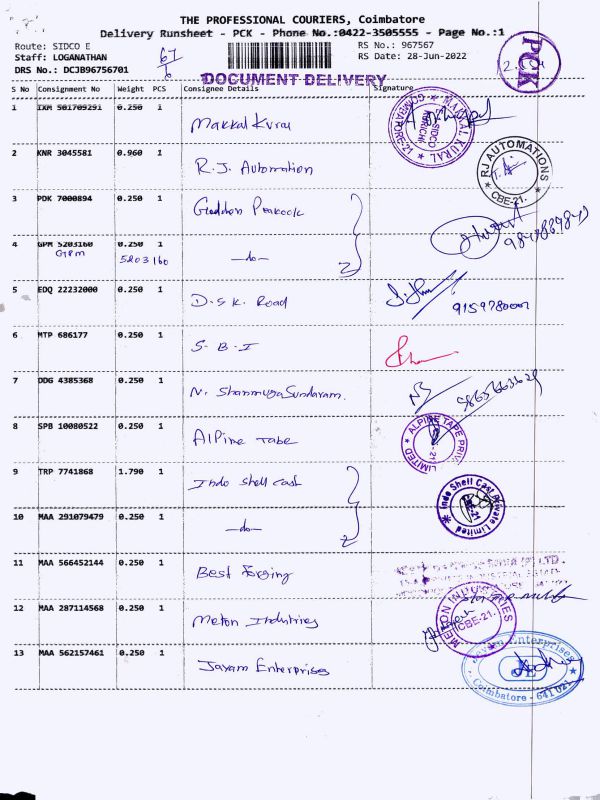 THE PROFESSIONAL COURIERS, Coimbatore
Delivery Runsheet - PCK - Phone No.:0422-3505555 - Page No.:1
Route: SIDCO E
Staff: LOGANATHAN
DRS No.: DCJB96756701
67/6
RS No.: 967567
RS Date: 28-Jun-2022
PCK
DOCUMENT DELIVERY
S No Consignment No Weight PCS Consignee Details Signature
1 IXM 501709291 0.250 1 Makkal Kural
MAKKAL KURAL COIMBATORE-21 SIDCO KURICHI
2 KNR 3045581 0.960 1 R.J. Automation
RJ AUTOMATIONS CBE-21.
3 PDK 7000894 0.250 1 Peacock
4 GPM 5203160 0.250 1 -do-
GPM 5203160
5 EDQ 22232000 0.250 1 D.S.K. Road
6 MTP 686177 0.250 1 S-B-I
7 DDG 4385368 0.250 1 N. Shanmuga Sundaram.
8 SPB 10080522 0.250 1 Alpine Tape
ALPINE TAPE PRIV. LIMITED
9 TRP 7741868 1.790 1 Indo Shell Cast
Indo Shell Cast Private Limited
10 MAA 291079479 0.250 1 -do-
11 MAA 566452144 0.250 1 Best Forging
12 MAA 287114568 0.250 1 Melon Industries
INDUSTRIES CBE-21.
13 MAA 562157461 0.250 1 Jayam Enterprises
Jayam Enterprises JE Coimbatore - 641 021